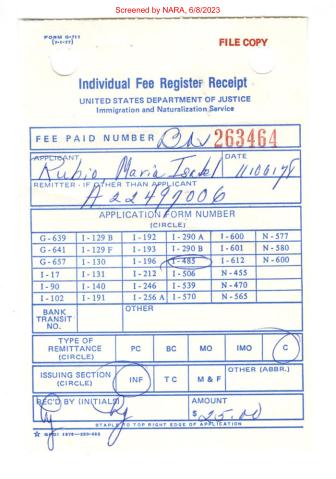 Screened by NARA, 6/8/2023
FORM G-711
(7-1-77)
FILE COPY
Individual Fee Register Receipt
UNITED STATES DEPARTMENT OF JUSTICE
Immigration and Naturalization Service
FEE PAID NUMBER 263464
APPLICANT DATE
Rubio, Maria Isabel
REMITTER - IF OTHER THAN APPLICANT
A22497006
APPLICATION FORM NUMBER
(CIRCLE)
G-639 I-129 B I-192 I-290 A I-600 N-577
G-641 I-129 F I-193 I-290 B I-601 N-580
G-657 I-130 I-196 I-485 I-612 N-600
I-17 I-131 I-212 I-506 N-455
I-90 I-140 I-246 I-539 N-470
I-102 I-191 I-256 A I-570 N-565
BANK TRANSIT NO. OTHER
TYPE OF REMITTANCE (CIRCLE) PC BC MO IMO C
ISSUING SECTION (CIRCLE) INF TC M & F OTHER (ABBR.)
REC'D BY (INITIALS) AMOUNT
$ 25.00
STAPLE TO TOP RIGHT EDGE OF APPLICATION